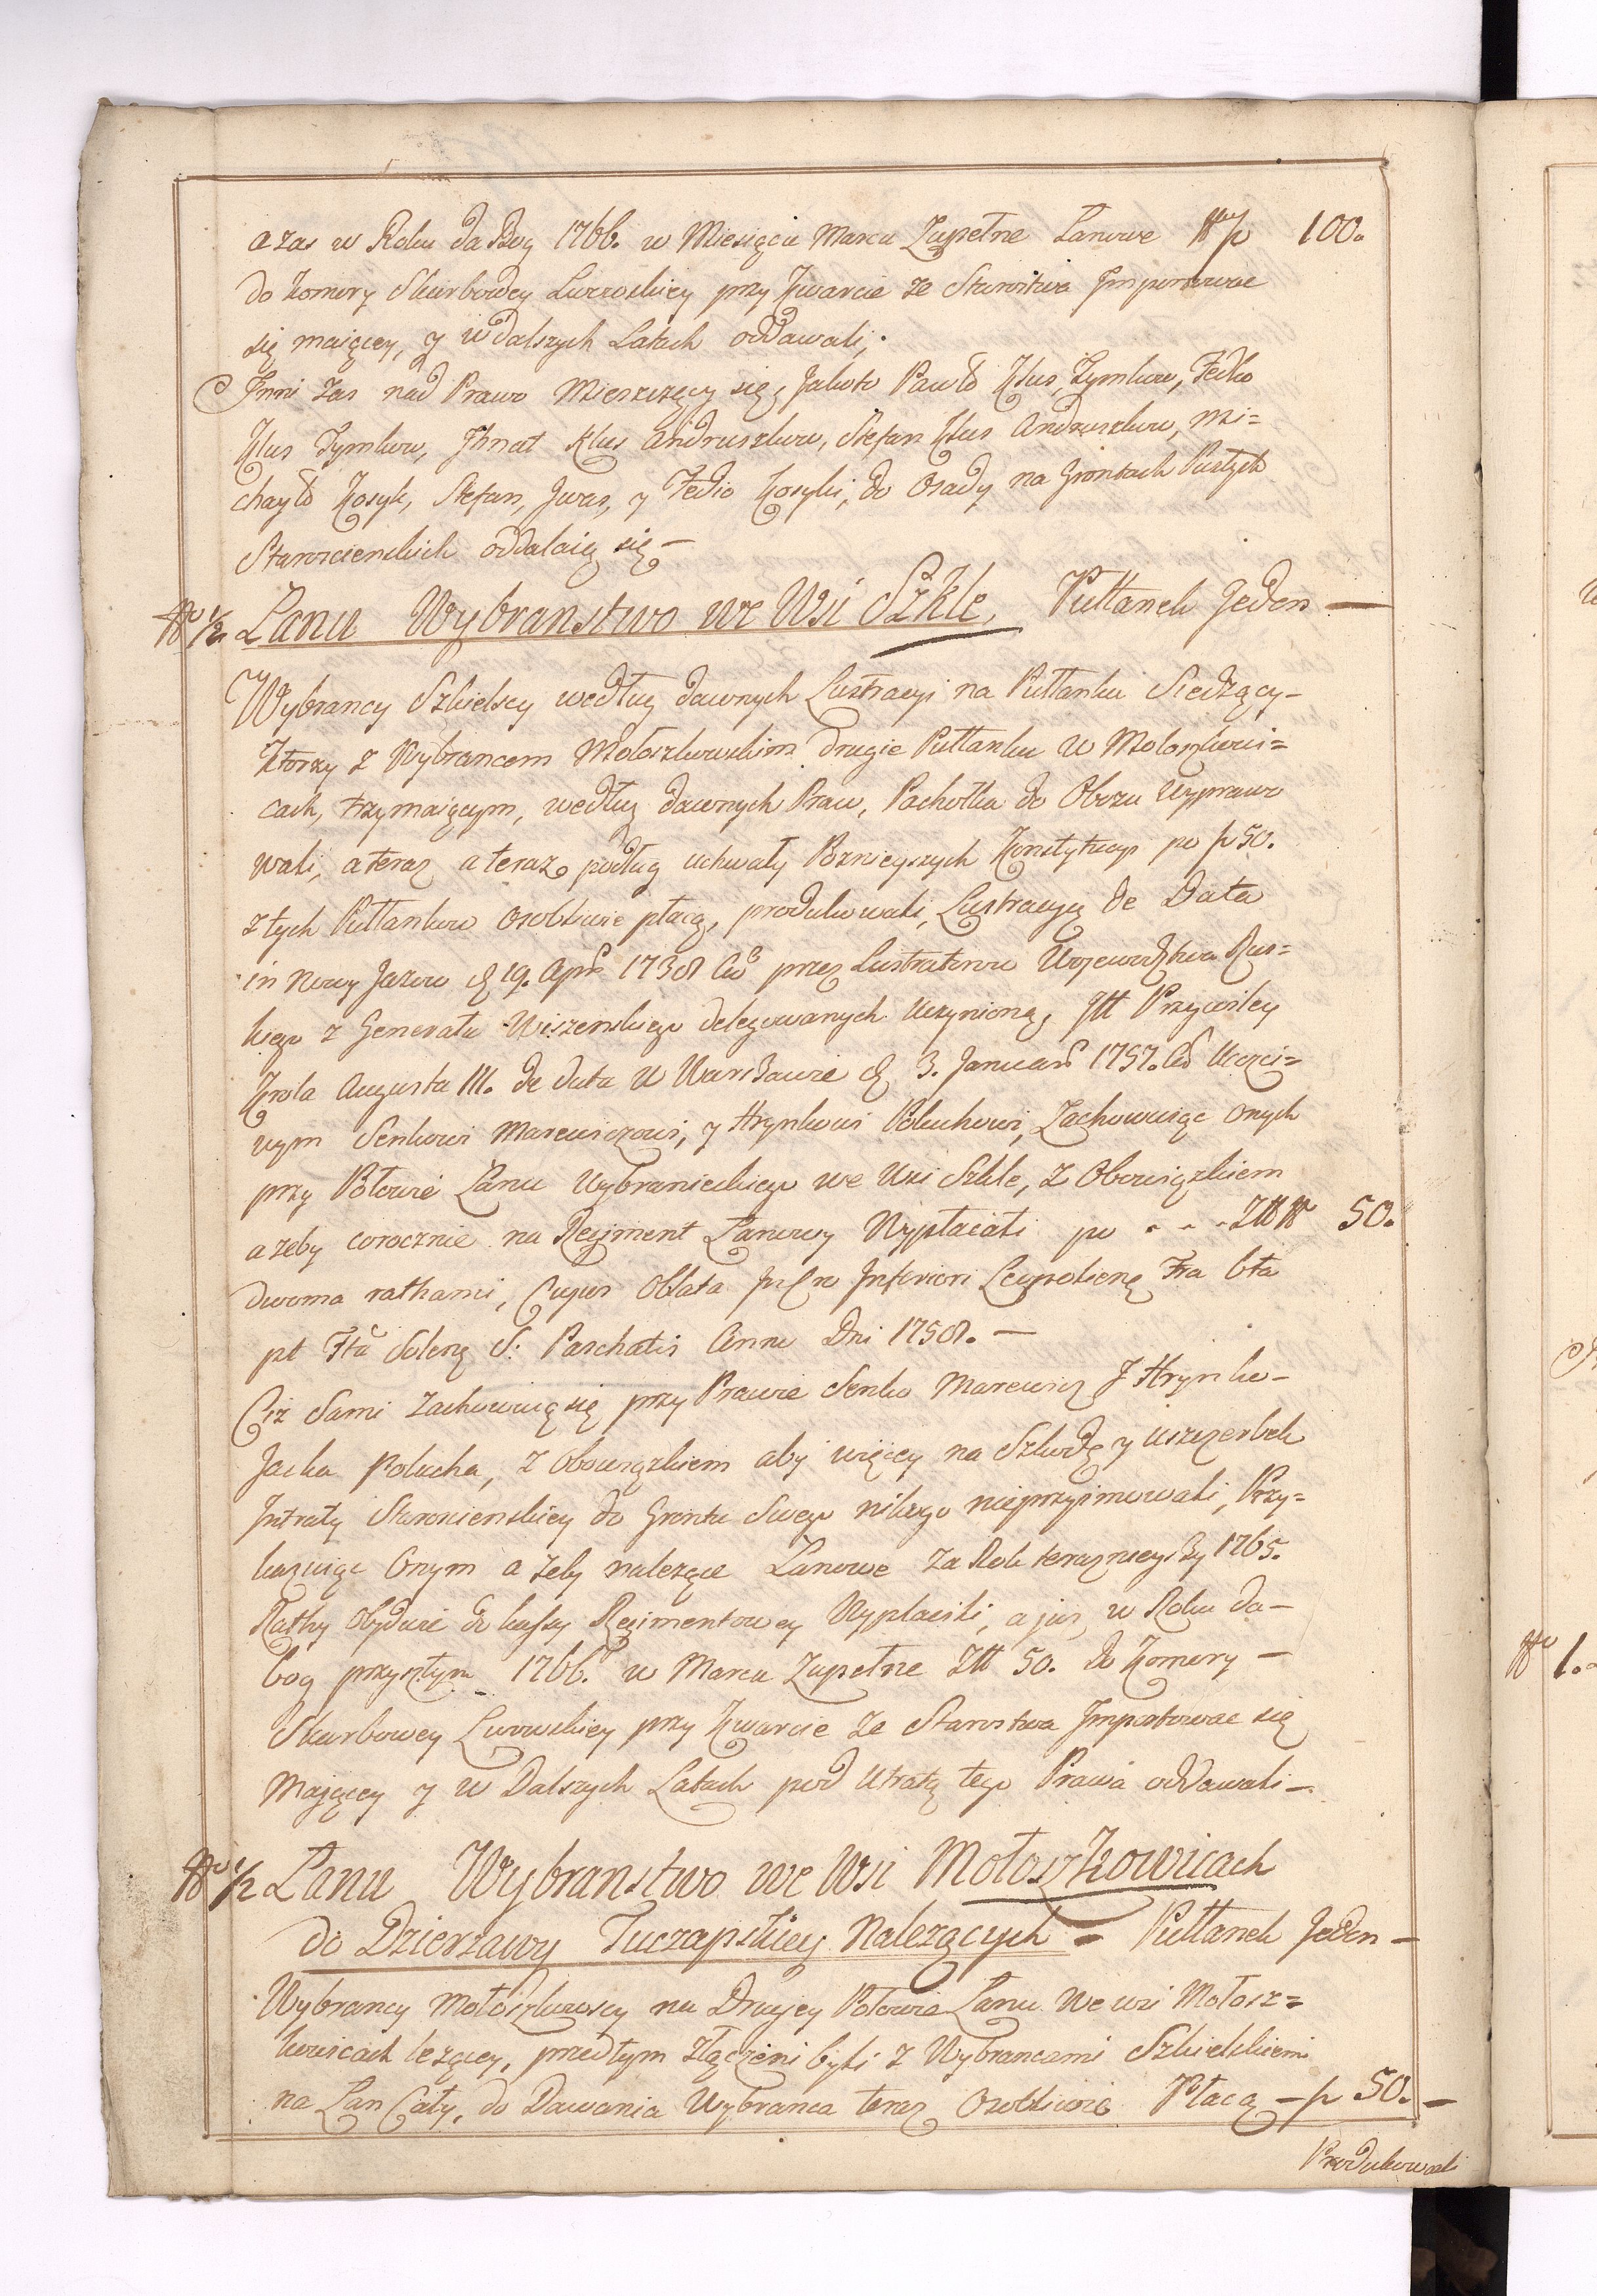 a zas w Roku da Bog 1766. w Miesiącu Marcu Zupełne Łanowe 100.
do Komory Skarbowey Lwowskiey przy Kwarcie ze Starostwa Importowac
się maiącey, y w dalszych Latach oddawali,
Inni zas nad Prawo Mieszczący się, Jakoto Pawło Kłus, Tymkow, Fedko
Kłus Tymkow, Ihnat Kłus Andruszkow, Stefan Kłus Andruszkow, Mi=
chayło Kosyk, Stefan, Iwas, y Fedio Kosyki, do Osady na Grontach Pustych
Staroscienskich oddalaią się —
No ½ Łanu Wybranstwo we Wsi Szkle, Pułłanek Jeden —
Wybrancy Szkielscy według dawnych Lustracyi na Pułłanku Siedzący –
Ktorzy z Wybrancem Mołoszkowskim drugie Pułłanku w Mołoszkowi=
cach, trzymaiącym, według dawnych Praw, Pachołka do Obozu Wyprawo
wali, a teraz a teraz podług uchwały Poznieyszych Konstytucyi po 50.
z tych Pułłankow osobliwie płacą, produkowali, Lustracyą de Data
in Nowy Jazow 19. Apr 1738 przez Lustratorow Woiewodztwa Rus=
kiego z Generału Wiszenskiego delegowanych Uczynioną, Przywiley
Krola Augusta III. de Data w Warszawie 3. Januar 1757. Uczci=
wym Senkowi Marcewiczowi, y Hrynkowi Poluchowi, Zachowuiąc onych
przy Połowie Łanu Wybranieckiego we Wsi Szkle, z Obowiązkiem
azeby corocznie na Regiment Łanowy Wypłacali po . . . 50.
dwoma rathami, Cujus Oblata Inferiori
pt Solenę S: Paschatis Anno Dni 1758. —
Ciz Sami zachowuią się przy Prawie Senko Marcewicz I Hrynko –
Jacka Polucha, z Obowiązkiem aby więcey na Szkodę y uszczerbek
Intraty Staroscienskiey do Grontu Swego nikogo nieprzyimowali, Przy=
kazuiąc Onym a zeby nalezące Łanowe za Rok terazniejszy 1765.
Rathy obydwie do kassy Regimentowey Wypłacili, a juz w Roku da –
bog przyszłym 1766. w Marcu Zupełne Złł 50. do Komory –
Skarbowey Lwowskiey przy Kwarcie ze Starostwa Importowac się
Mającey y w Dalszych Latach pod Utratą tego Prawa oddawali –
No ½ Łanu Wybranstwo we Wsi Mołoszkowicach
do Dzierzawy Tuczapskiey Nalezących – Pułłanek Jeden –
Wybrancy Mołoszkowscy na Drugiey Połowie Łanu We wsi Mołosz=
kowicach lezący, przedtym złączeni byli z Wybrancami Szkielskiemi
na Łan Cały, do Dawania Wybranca teraz Osobliwie Płacą – 50. –
Produkowali